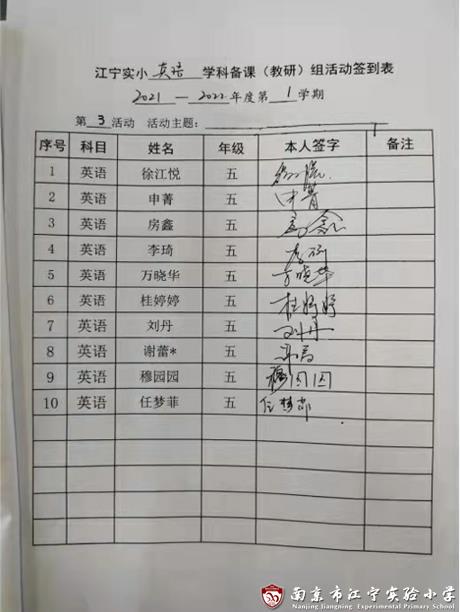 江宁实小 英语 学科备课（教研）组活动签到表
2021—2022年度第 1 学期
第 3 活动 活动主题：
序号 科目 姓名 年级 本人签字 备注
1 英语 徐江悦 五
2 英语 申菁 五 申菁
3 英语 房鑫 五 房鑫
4 英语 李琦 五 李琦
5 英语 万晓华 五 万晓华
6 英语 桂婷婷 五 桂婷婷
7 英语 刘丹 五 刘丹
8 英语 谢蕾* 五
9 英语 穆园园 五 穆园园
10 英语 任梦菲 五 任梦菲
南京市江宁实验小学
Nanjing Jiangning Experimental Primary School